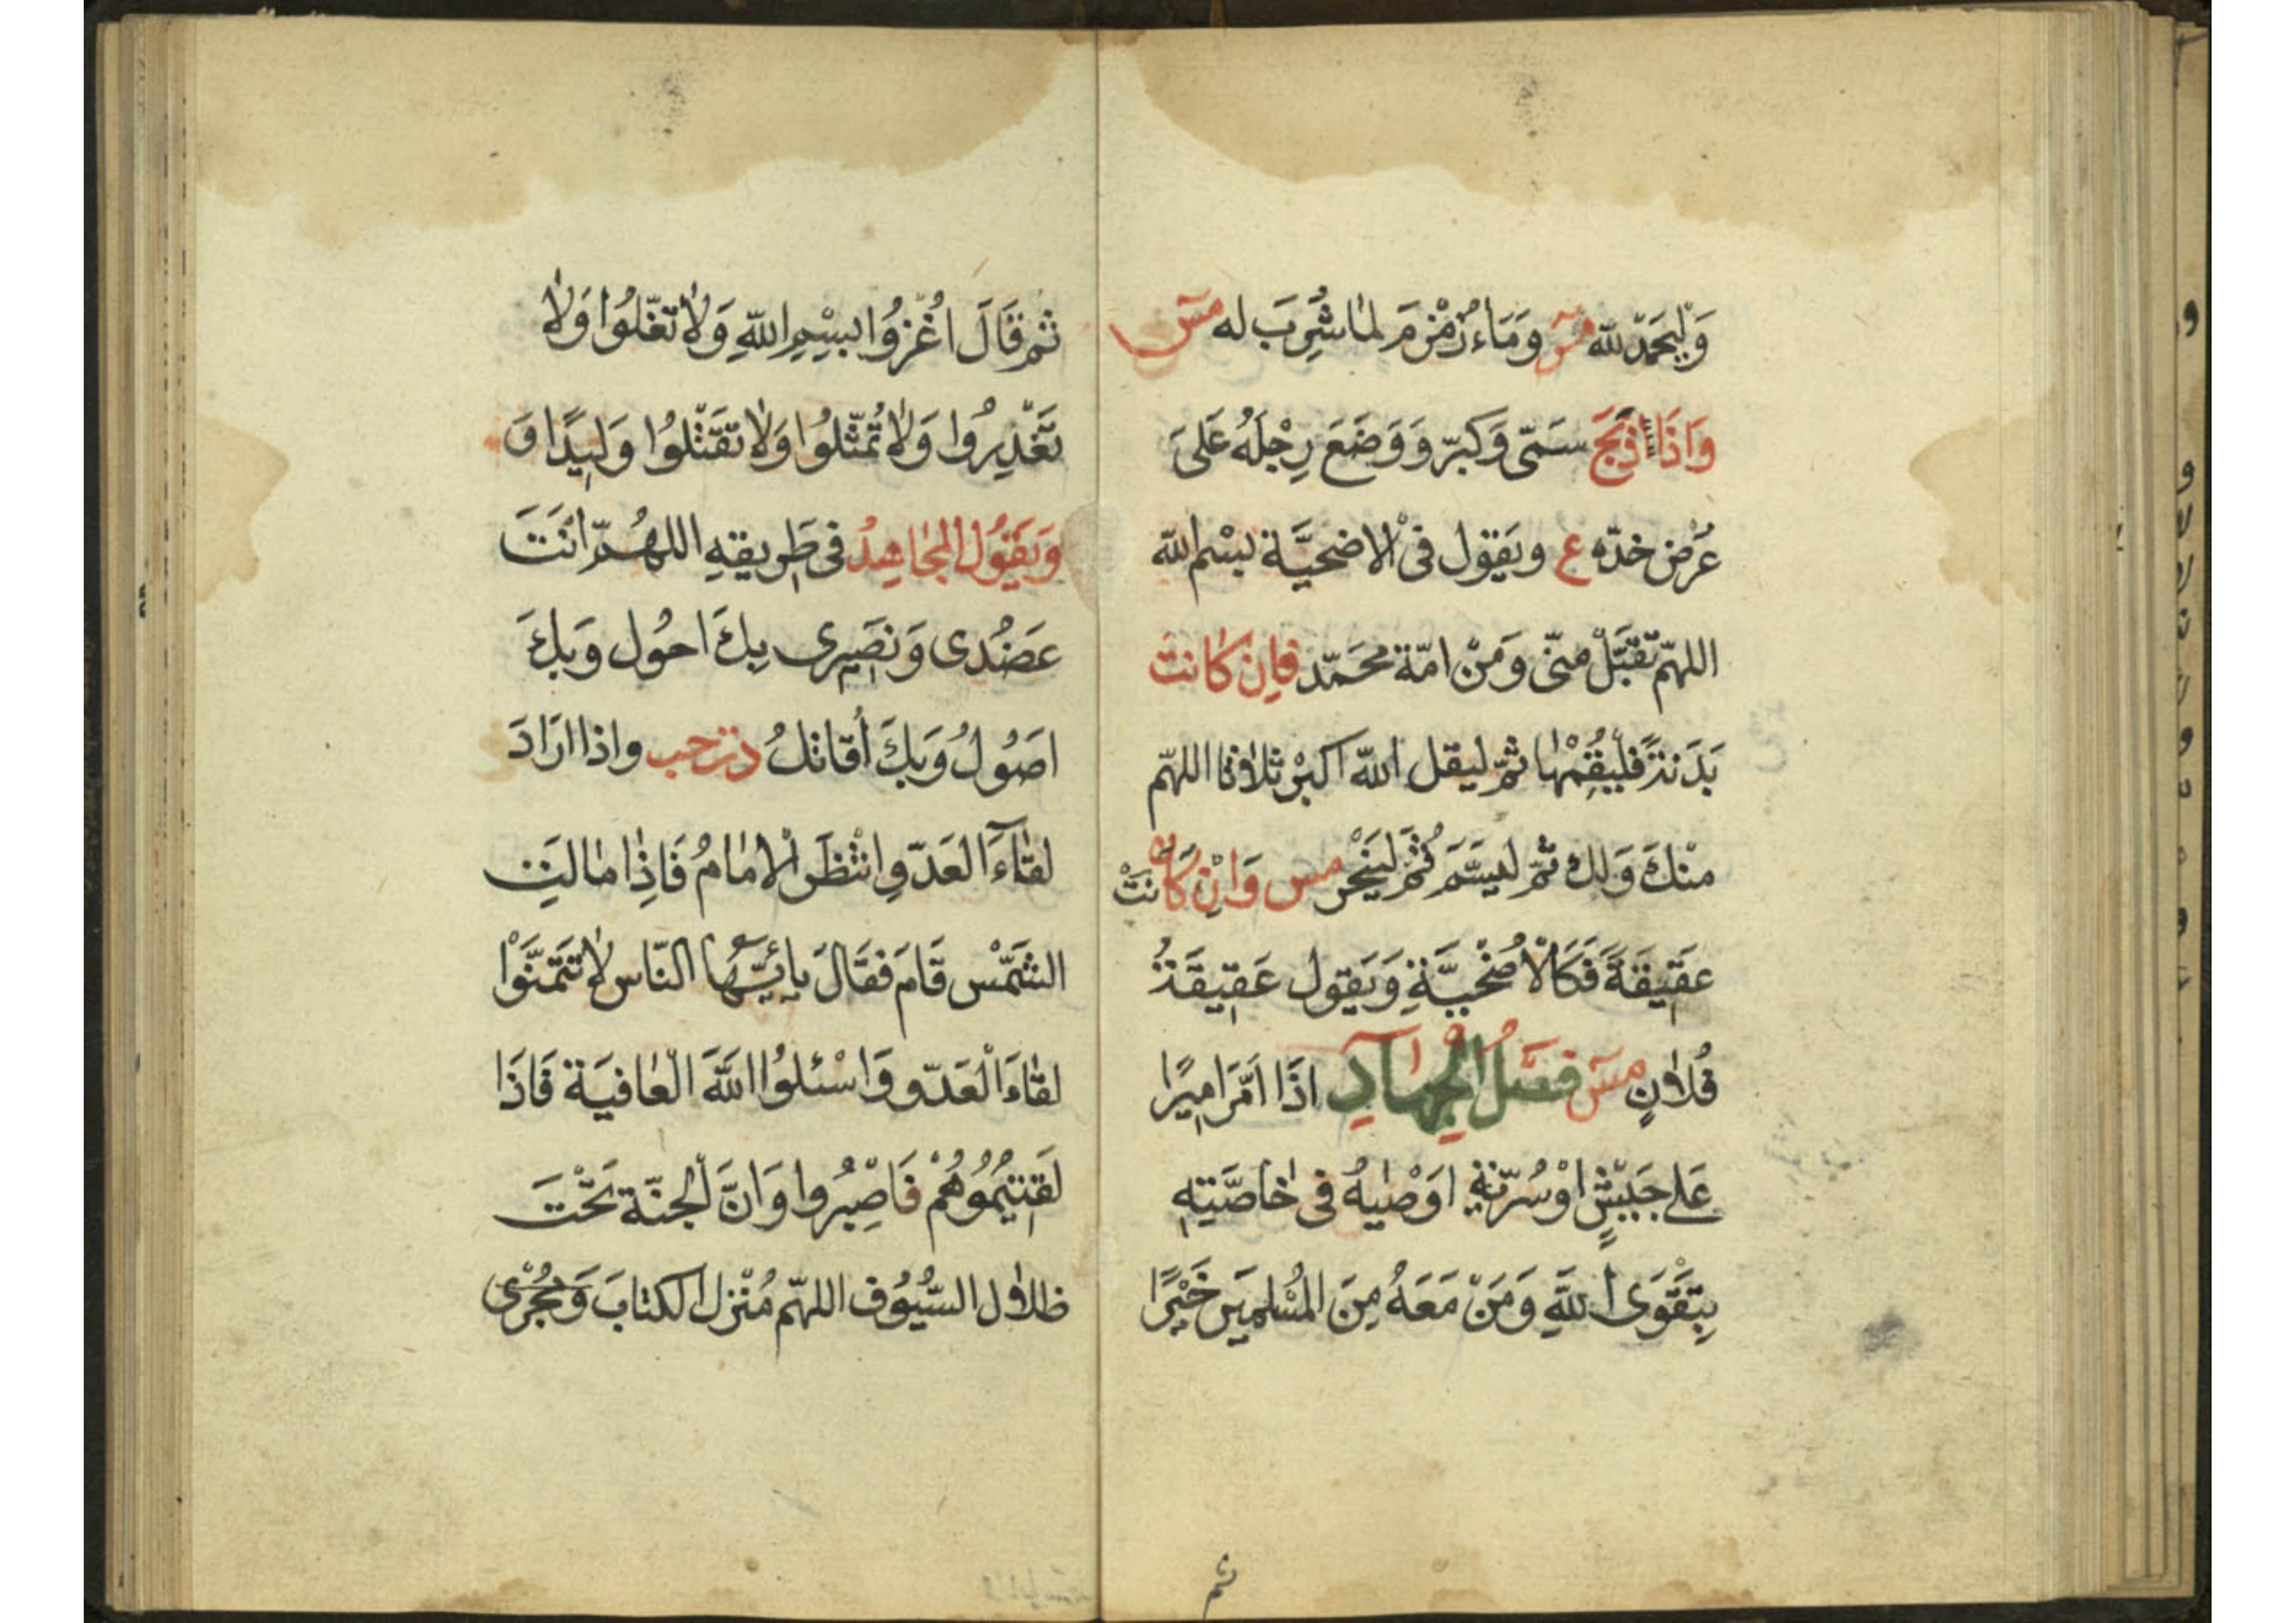 وَلْيَحْمَدِ لله مس وَمَاء زُمْزمَ لمَا شُرِبَ له مس
وَاذَا ذَبَحَ سَمّى وَكبّر وَوَضَعَ رِجْلَهُ عَلىَ
عُرْض خدّه ع ويَقول فى الاضحيَّة بسْم الله
اللهمّ تَقَبَّلْ منّى وَمَنْ امّة محَمّد فاِن كانت
بَدَنةً فليُقِمْهَا ثمّ ليقل الله اكبْر ثلاثا اللهمّ
منْكَ وَلك ثمّ ليسَّمَ ثُمَّ ليَنْحر مس وَاِنْ كَانتْ
عَقِيقَةً فَكَالْاُضْحِيَّةِ وَيَقول عَقِيقَةُ
فُلاَنٍ مس فصَلُ الْجِهَادِ اذَا اَمَّرَ اميِرًا
عَلى جَيْشٍ اوْ سُرّيَةٍ اوَصْاهُ فى خاصَّتِهِ
بِتَقْوَى اللَّهِ وَمَنْ مَعَهُ مِنَ المُسْلِمينَ خَيْرًا
ثم
ثم قَالَ اغْزُوا بِسْمِ اللهِ وَلاَ تَغُلّوُا وَلاَ
تَغْدِرُوا وَلاَ تُمثّلوُا وَلاَ تَقتْلوُا وَليِدًا وَ
وَيَقوُل المجَاهِدُ فى طَرِيقهِ اللهُمّ انَتَ
عَضُدى وَنَصِيرى بِكَ احُول وَبِكَ
اصَوُلُ وَبِكَ اُقاتلُ د ت حب واذا ارَادَ
لقاءَ العَدّو انْتظَر الْامَامُ فَاِذا مالَت
الشمَّسْ قَامَ فقَالَ يا اَيّهُا النّاس لاَ تَتَمنَّوْا
لقاءَ الْعَدّو وَاسْئلوُا اللَّهَ الْعَافيَة فَاذَا
لَقِيتمُوُهُمْ فَاصْبِرُوا وَانَّ الجنّة تَحْتَ
ظلاَل السُّيوُف اللهمّ مُنْزل الكتابَ وَمُجْرى